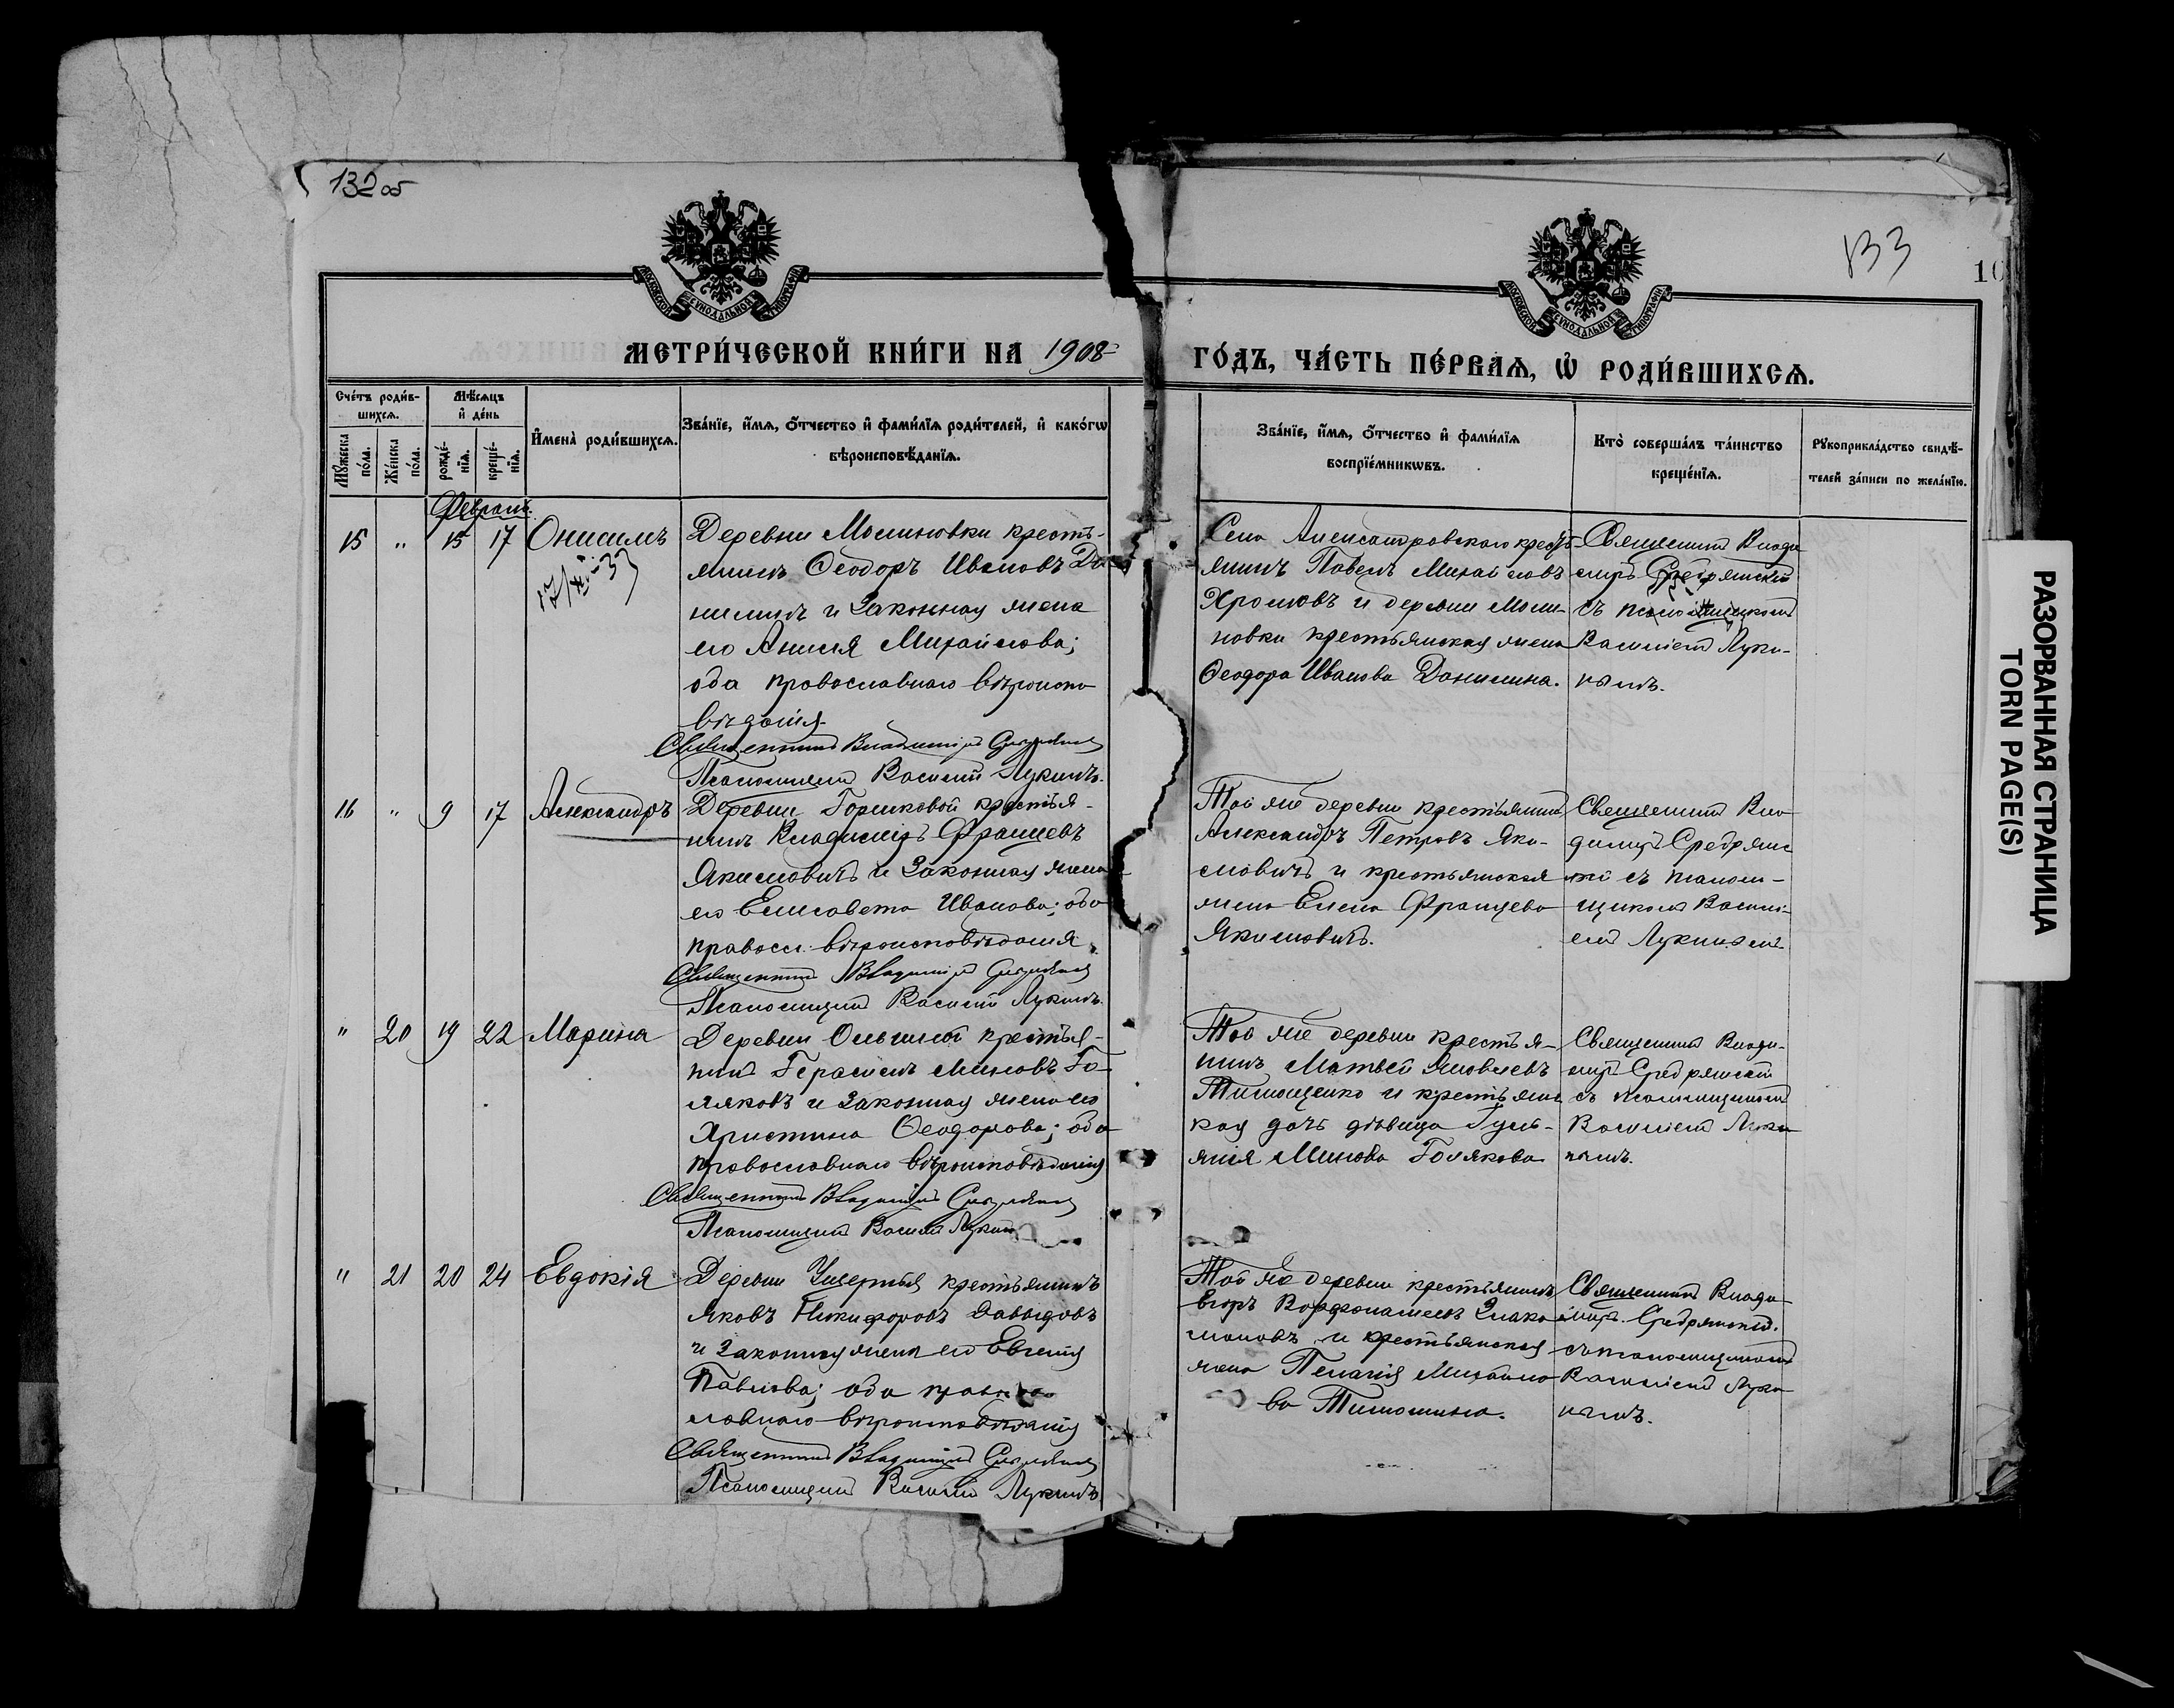 132 об
133
10
МОСКОВСКОЙ СѴНОДАЛЬНОЙ ТИПОГРАФІИ
МОСКОВСКОЙ СѴНОДАЛЬНОЙ ТИПОГРАФІИ
МЕТРИ́ЧЕСКОЙ КНИ́ГИ НА 1908
ГО́ДЪ, ЧА́СТЬ ПЕ́РВАѦ, Ѡ҆ РОДИ́ВШИХСѦ.
Сче́тъ роди́в-
шихсѧ.
Мꙋ́жеска по́ла.
Же́нска по́ла.
Мѣ́сѧцъ
и҆ де́нь
рожде́-
нїѧ.
креще́-
нїѧ.
И҆мена̀ роди́вшихсѧ.
Зва́нїе, и҆́мѧ, ѻ҆́тчество и҆ фами́лїѧ роди́телей, и҆ како́гѡ
вѣроисповѣ́данїѧ.
Зва́нїе, и҆́мѧ, ѻ҆́тчество и҆ фами́лїѧ
воспрїе́мникѡвъ.
Кто̀ соверша́лъ та́инство
креще́нїѧ.
Рꙋкоприкла́дство свидѣ́-
телей за́писи по жела́нїю.
Февраль.
15 " 15 17 Онисимъ
Деревни кресть-
янинъ Ѳеодоръ Ивановъ Да-
нилинъ и законная жена
его Анисія Михайлова;
оба православнаго вѣроиспо-
вѣданія.
Священникъ Владиміръ
Псаломщикъ Василій Лукинъ.
Села Александровскаго кресть-
янинъ Павелъ Михайловъ
Хромовъ и деревни
новки крестьянская жена
Ѳеодора Иванова Данилина.
Священникъ Влади-
міръ Сребрянскій
съ псаломщикомъ
Василіемъ Луки-
нымъ.
16 " 9 17 Александръ
Деревни Горшковой крестья-
нинъ Владиміръ Францевъ
Якимовичъ и законная жена
его Елисавета Иванова; оба
правосл. вѣроисповѣданія.
Священникъ Владиміръ
Псаломщикъ Василій Лукинъ.
Той же деревни крестьянинъ
Александръ Петровъ Яки-
мовичъ и крестьянская
жена Елена Францева
Якимовичъ.
Священникъ Вла-
диміръ Сребрянс-
кій съ псалом-
щикомъ Васили-
емъ Лукинымъ
" 20 19 22 Марина
Деревни Ольгиной крестья-
нинъ Герасимъ Миновъ Го-
ляковъ и законная жена его
Христина Ѳеодорова; оба
православнаго вѣроисповѣданія
Священникъ Владиміръ
Псаломщикъ Василій Лукинъ
Той же деревни крестья-
нинъ Матвей Яковлевъ
Тимощенко и крестьянс-
кая дочь дѣвица
Минова Голякова
Священникъ Влади-
міръ Сребрянскій
съ псаломщикомъ
Василіемъ Луки-
нымъ.
" 21 20 24 Евдокія
Деревни крестьянинъ
Яковъ Никифоровъ Давыдовъ
и законная жена его Евгенія
Павлова; оба правос-
лавнаго вѣроисповѣданія
Священникъ Владиміръ
Псаломщикъ Василій Лукинъ
Той же деревни крестьянинъ
Егоръ
и крестьянская
жена Пелагія Михайло-
ва Тимошина.
Священникъ Влади-
міръ Сребрянскій.
съ псаломщикомъ
Василіемъ Луки-
нымъ.
РАЗОРВАННАЯ СТРАНИЦА
TORN PAGE(S)